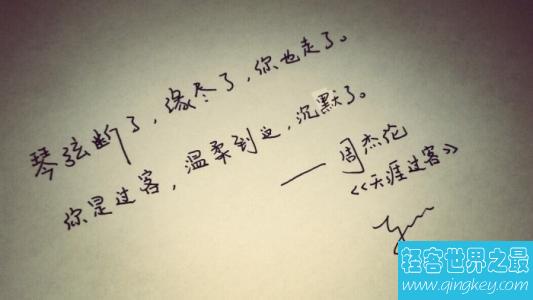 琴弦断了，缘尽了，你也走了。
你是过客，温柔到这，沉默了。
——周杰伦
《天涯过客》
轻客世界之最
www.qingkey.com